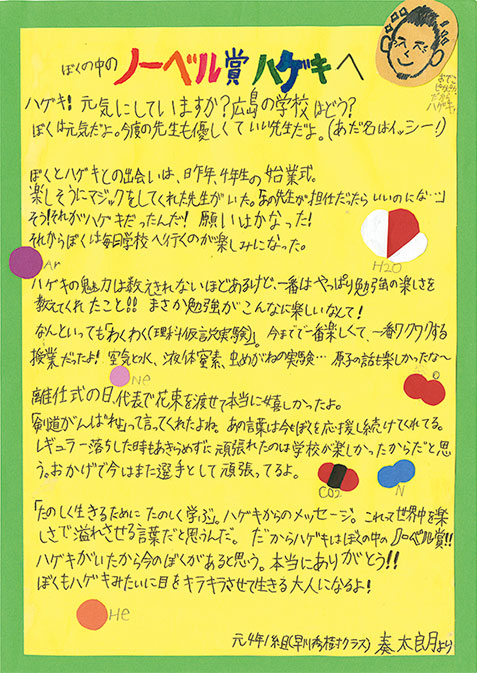 ぼくの中のノーベル賞ハゲキへ
おでこ
ピッカピカ
だから
ハゲキ!
ハゲキ! 元気にしていますか?広島の学校はどう?
ぼくは元気だよ。今度の先生も優しくていい先生だよ。(あだ名はイッシー!)
ぼくとハゲキとの出会いは、昨年、4年生の始業式。
楽しそうにマジックをしてくれた先生がいた。「あの先生が担任だったらいいのにな…」
そう!それがハゲキだったんだ! 願いはかなった!
それからぼくは毎日学校へ行くのが楽しみになった。
Ar
H2O
ハゲキの魅力は数えきれないほどあるけど、一番はやっぱり勉強の楽しさを
教えてくれたこと!! まさか勉強がこんなに楽しいなんて!
なんといってもわくわく「理科仮説実験」。今までで一番楽しくて、一番ワクワクする
授業だったよ! 空気と水、液体窒素、虫めがねの実験… 原子の話も楽しかったな〜
Ne
O
離任式の日、代表で花束を渡せて本当に嬉しかったよ。
「剣道がんばれよ」って言ってくれたよね。あの言葉は今もぼくを応援し続けてくれてる。
レギュラー落ちした時もあきらめずに頑張れたのは学校が楽しかったからだと思
う。おかげで今はまた選手として頑張ってるよ。
CO2
N
「たのしく生きるために たのしく学ぶ」。ハゲキからのメッセージ。これって世界中を楽
しさで溢れさせる言葉だと思うんだ。 だからハゲキはぼくの中のノーベル賞!!
ハゲキがいたから今のぼくがあると思う。本当にありがとう!!
ぼくもハゲキみたいに目をキラキラさせて生きる大人になるよ!
He
元4年1組(早川秀樹クラス) 秦 太良月より